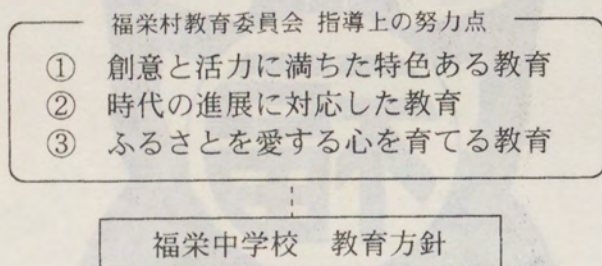 福栄村教育委員会 指導上の努力点
① 創意と活力に満ちた特色ある教育
② 時代の進展に対応した教育
③ ふるさとを愛する心を育てる教育
福栄中学校 教育方針